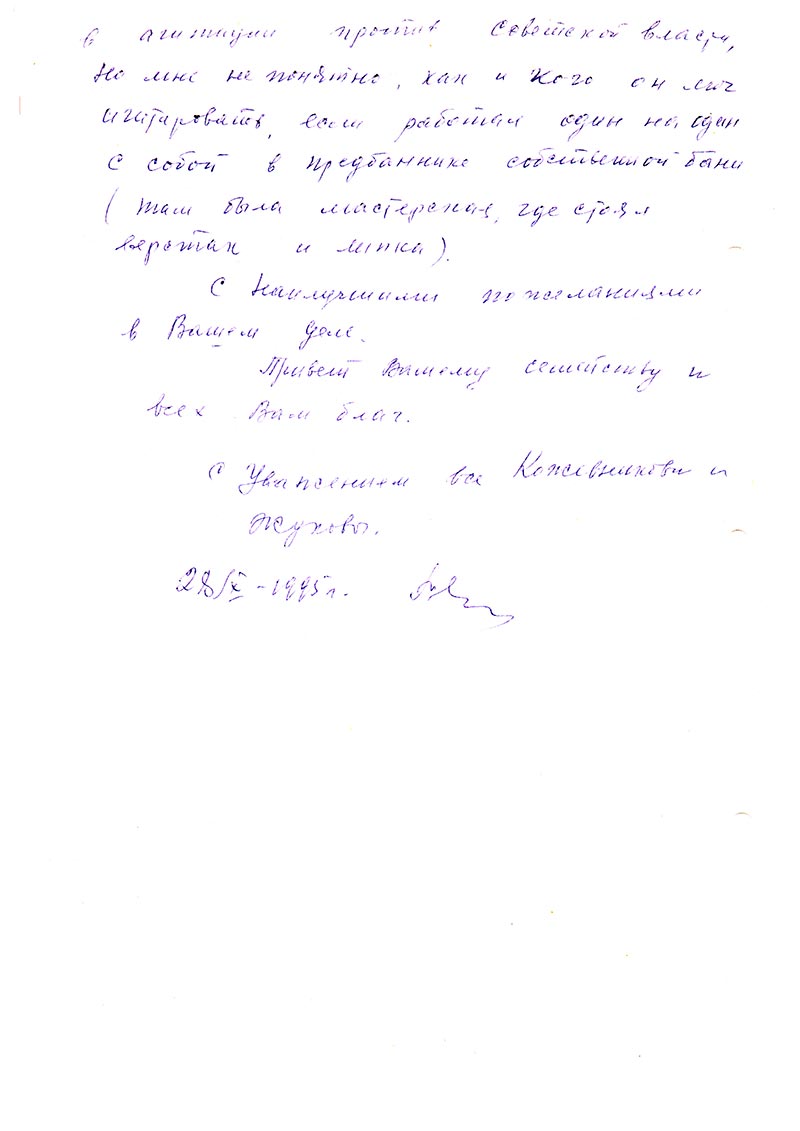 в агитации против Советской власти,
Но мне не понятно, как и кого он мог
агитировать, если работал один на один
с собой в предбаннике собственной бани
(там была мастерская, где стоял
верстак и липка).
С Наилучшими пожеланиями
в Вашем деле.
Привет Вашему семейству и
всех Вам благ.
С Уважением все Кожевниковы и
Жуковы.
28/X-1995г.